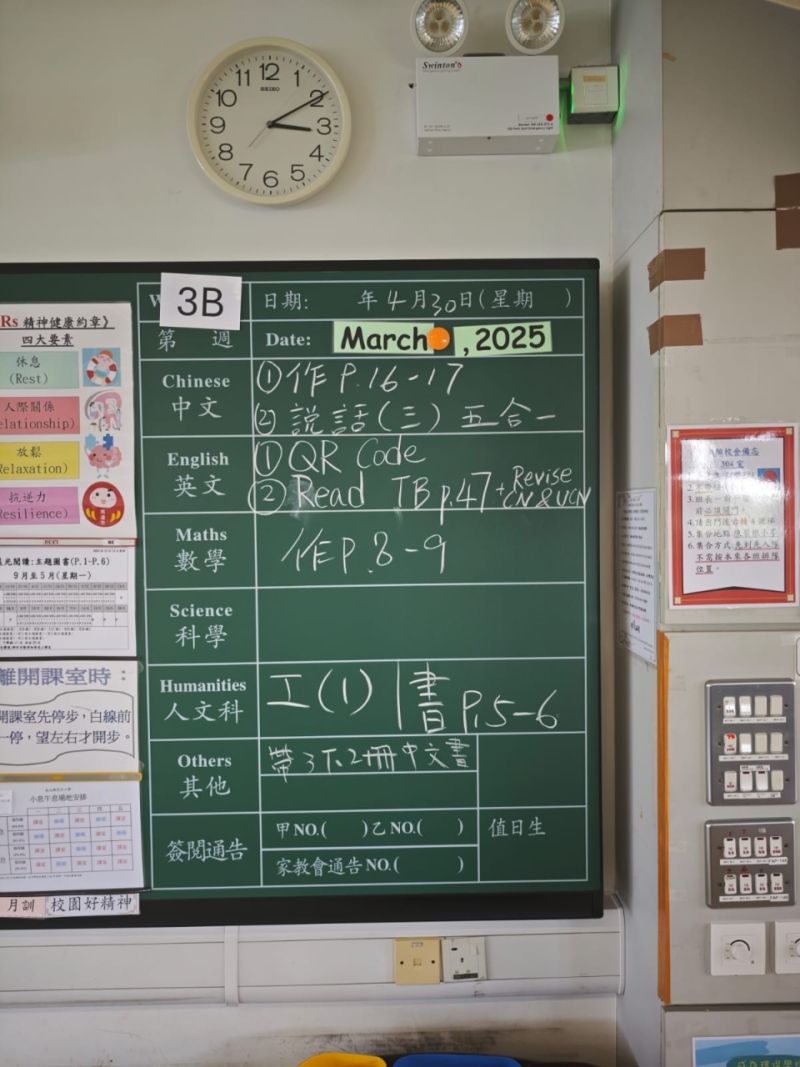 12
11
1
10
2
9
3
8
4
7
6
5
SEIKO
Swinton's
3B
日期: 年4月30日(星期 )
第 週
Date: March , 2025
Chinese
中文
①作 P.16-17
② 説話(三) 五合一
English
英文
① QR Code
② Read TB p.47 + Revise CN & UCN
Maths
數學
作 P.8-9
Science
科學
Humanities
人文科
工(1) | 書 P.5-6
Others
其他
帶3下2冊中文書
簽閱通告
甲NO.( )乙NO.( )
家教會通告NO.( )
值日生
Rs 精神健康約章》
四大要素
休息
(Rest)
人際關係
elationship)
放鬆
Relaxation)
抗逆力
Resilience)
光閱讀:主題圖書(P.1-P.6)
9月至5月(星期一)
離開課室時:
開課室先停步,白線前
一停,望左右才開步。
小息午息場地安排
月訓
校園好精神
304室
4. 請出門後右轉4號梯
5. 集合地點
6. 集合方式
不需按本來各班排隊
位置。